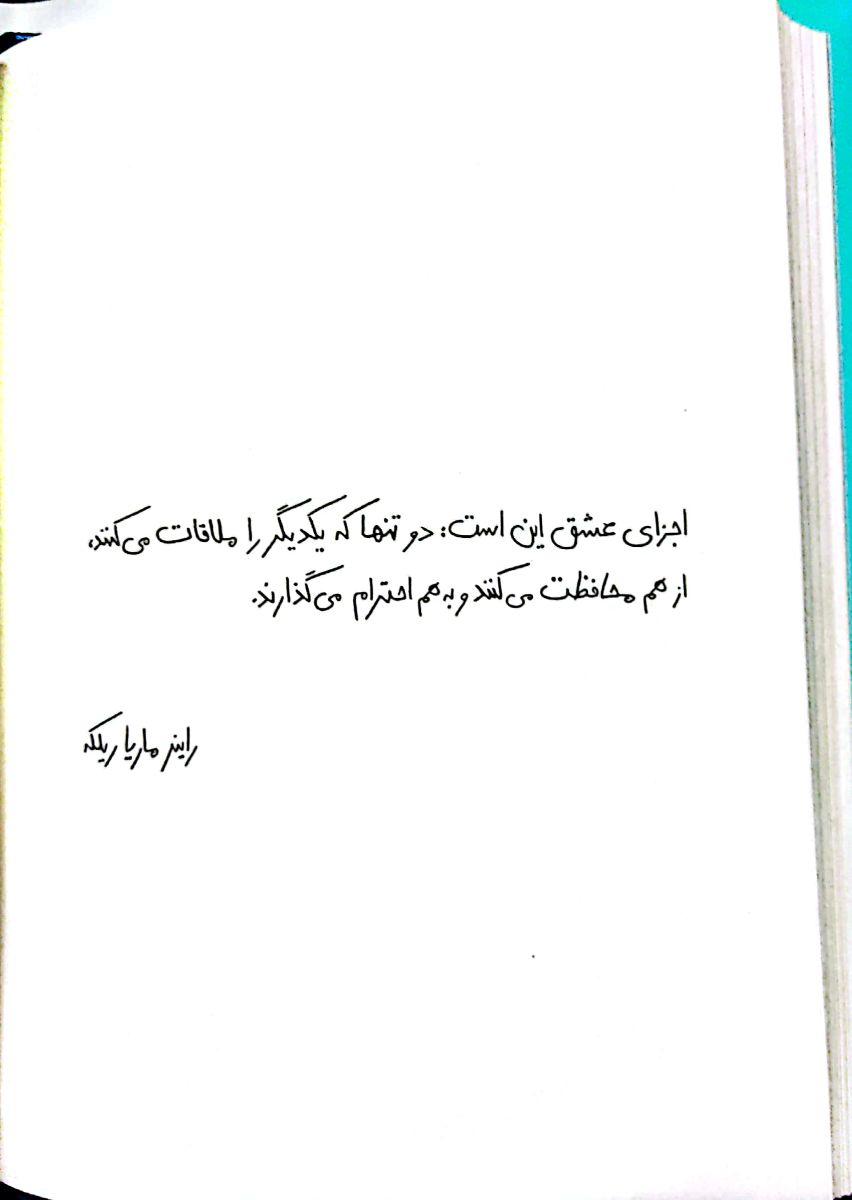 اجزای عشق این است: دو تنها که یکدیگر را ملاقات می‌کنند،
از هم محافظت می‌کنند و به هم احترام می‌گذارند.
راینر ماریا ریلکه